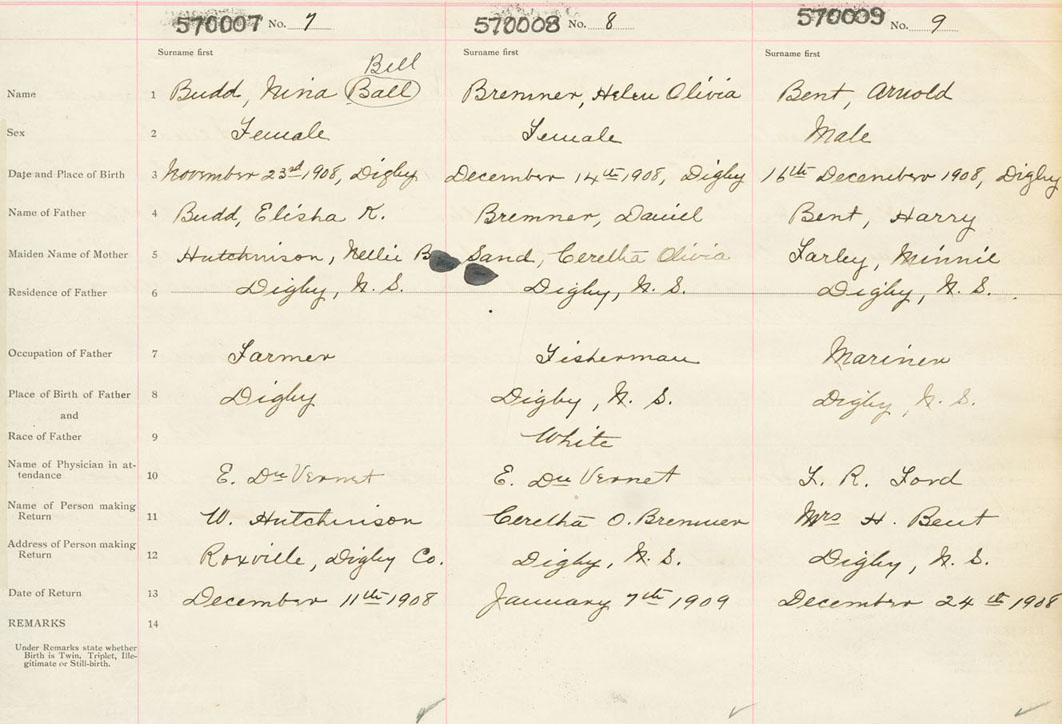 570007 No. 7 570008 No. 8 570009 No. 9
Surname first Surname first Surname first
Bell
Name 1 Budd, Nina Ball Bremner, Helen Olivia Bent, Arnold
Sex 2 Female Female Male
Date and Place of Birth 3 November 23rd 1908, Digby December 14th 1908, Digby 16th December 1908, Digby
Name of Father 4 Budd, Elisha K. Bremner, Daniel Bent, Harry
Maiden Name of Mother 5 Hutchinson, Nellie B Sand, Ceretha Olivia Farley, Minnie
Residence of Father 6 Digby, N. S. Digby, N. S. Digby, N. S.
Occupation of Father 7 Farmer Fisherman Mariner
Place of Birth of Father 8 Digby Digby, N. S. Digby, N. S.
and
Race of Father 9 White
Name of Physician in at-
tendance 10 E. Du Vernet E. Du Vernet F. R. Ford
Name of Person making
Return 11 W. Hutchinson Ceretha O. Bremner Mrs H. Bent
Address of Person making
Return 12 Roxville, Digby Co. Digby, N. S. Digby, N. S.
Date of Return 13 December 11th 1908 January 7th 1909 December 24th 1908
REMARKS 14
Under Remarks state whether
Birth is Twin, Triplet, Ille-
gitimate or Still-birth.